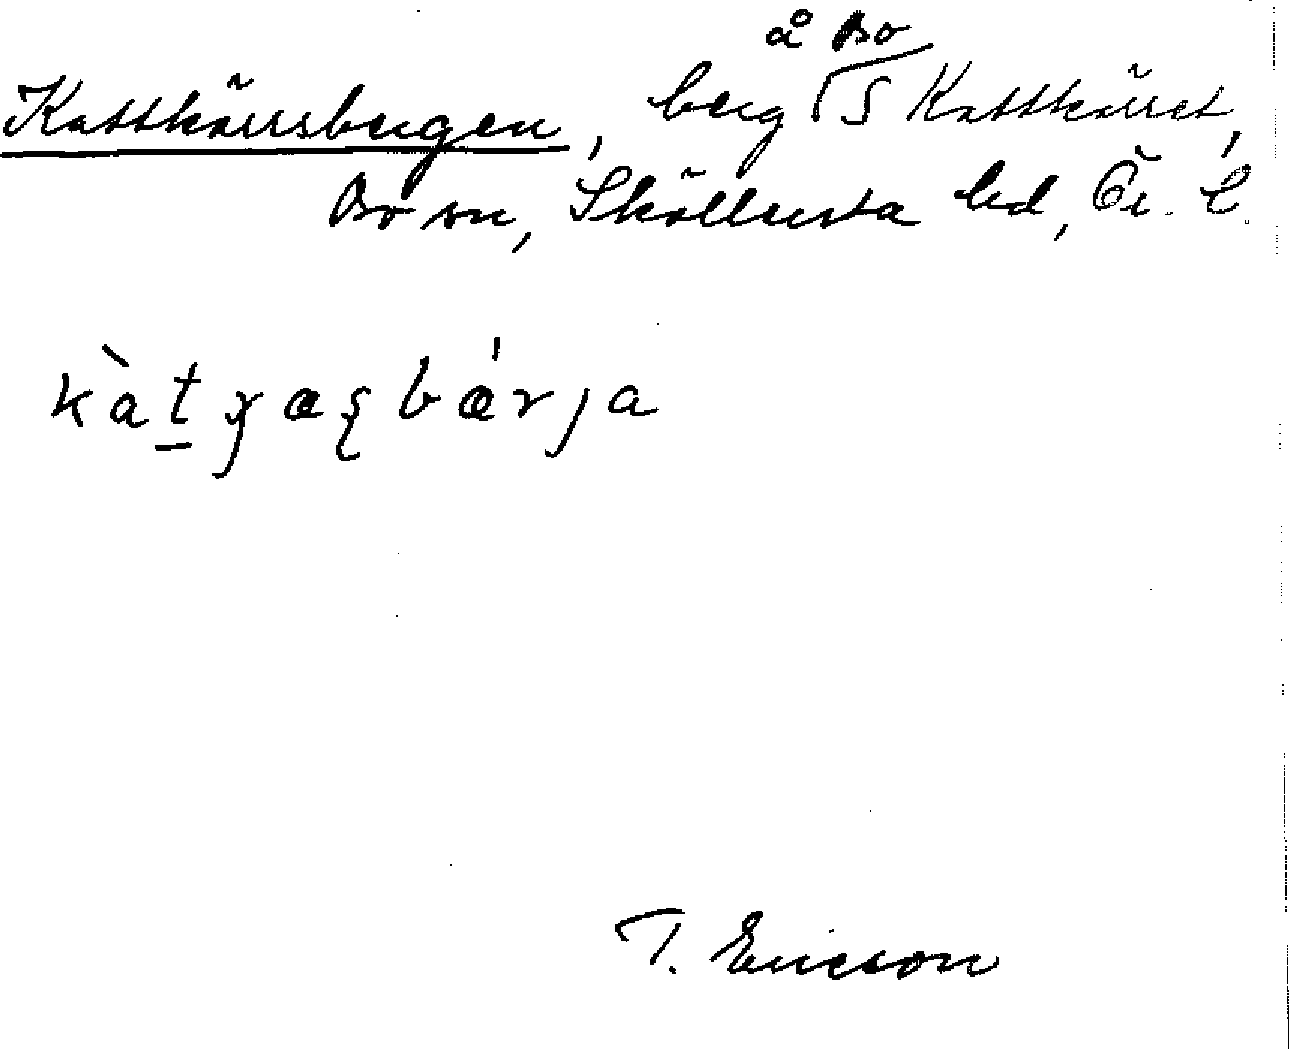 å Bo
Kattkärrsbergen, berg S Kattkärret,
Bo sn, Sköllersta hd, Ör. l.
kàt̲ɣæʂbǽrja
T. Ericson